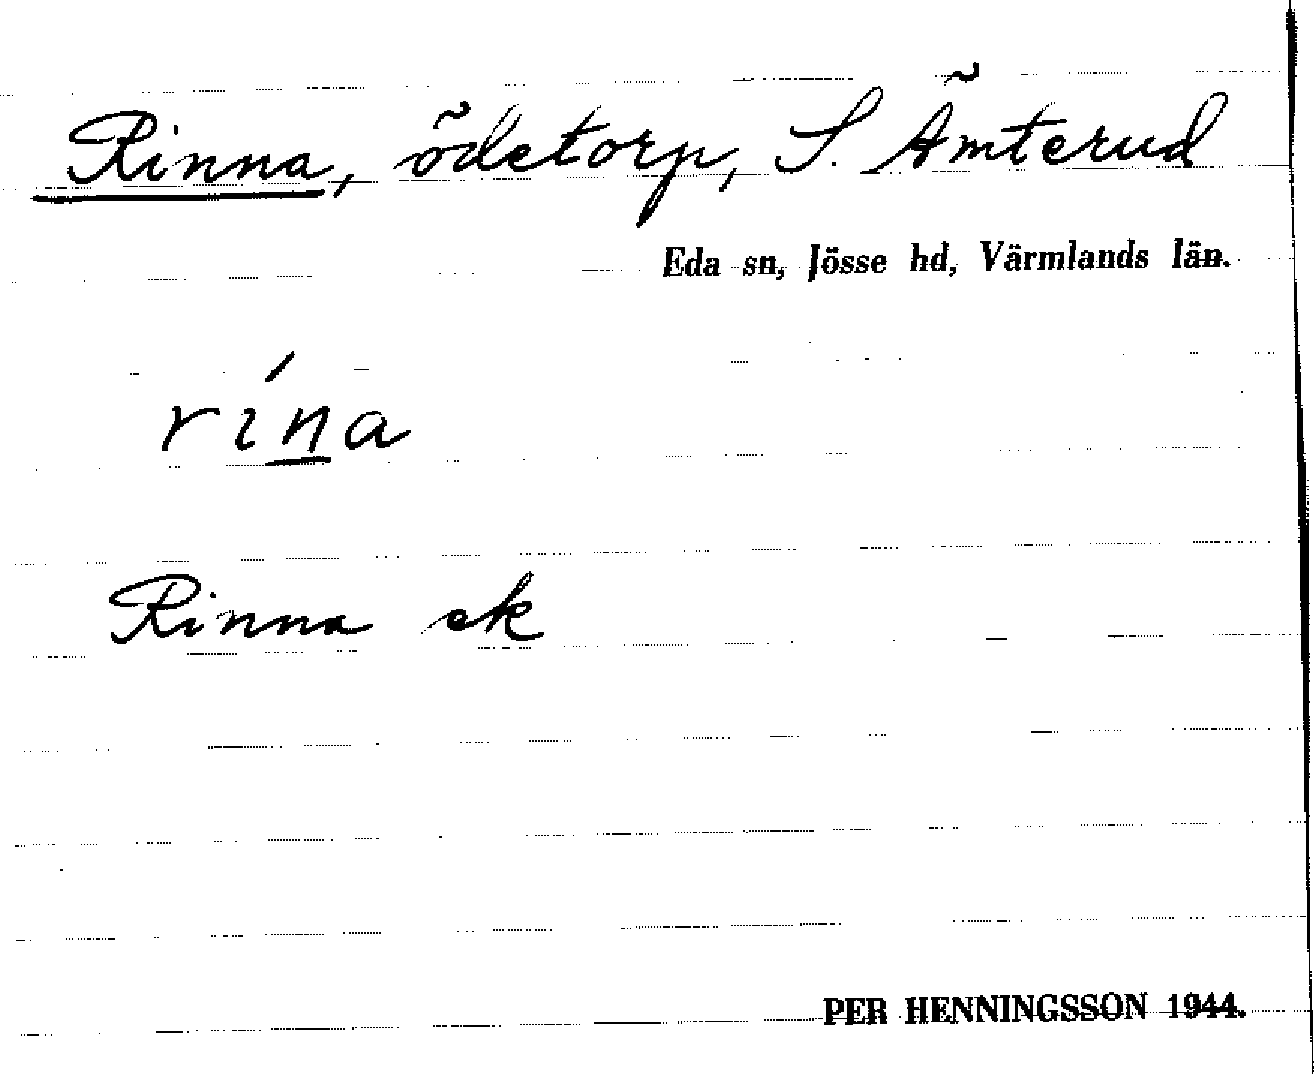 Rinna, ödetorp, S. Ämterud
Eda sn, Jösse hd, Värmlands län.
rína
Rinna ek
PER HENNINGSSON 1944.